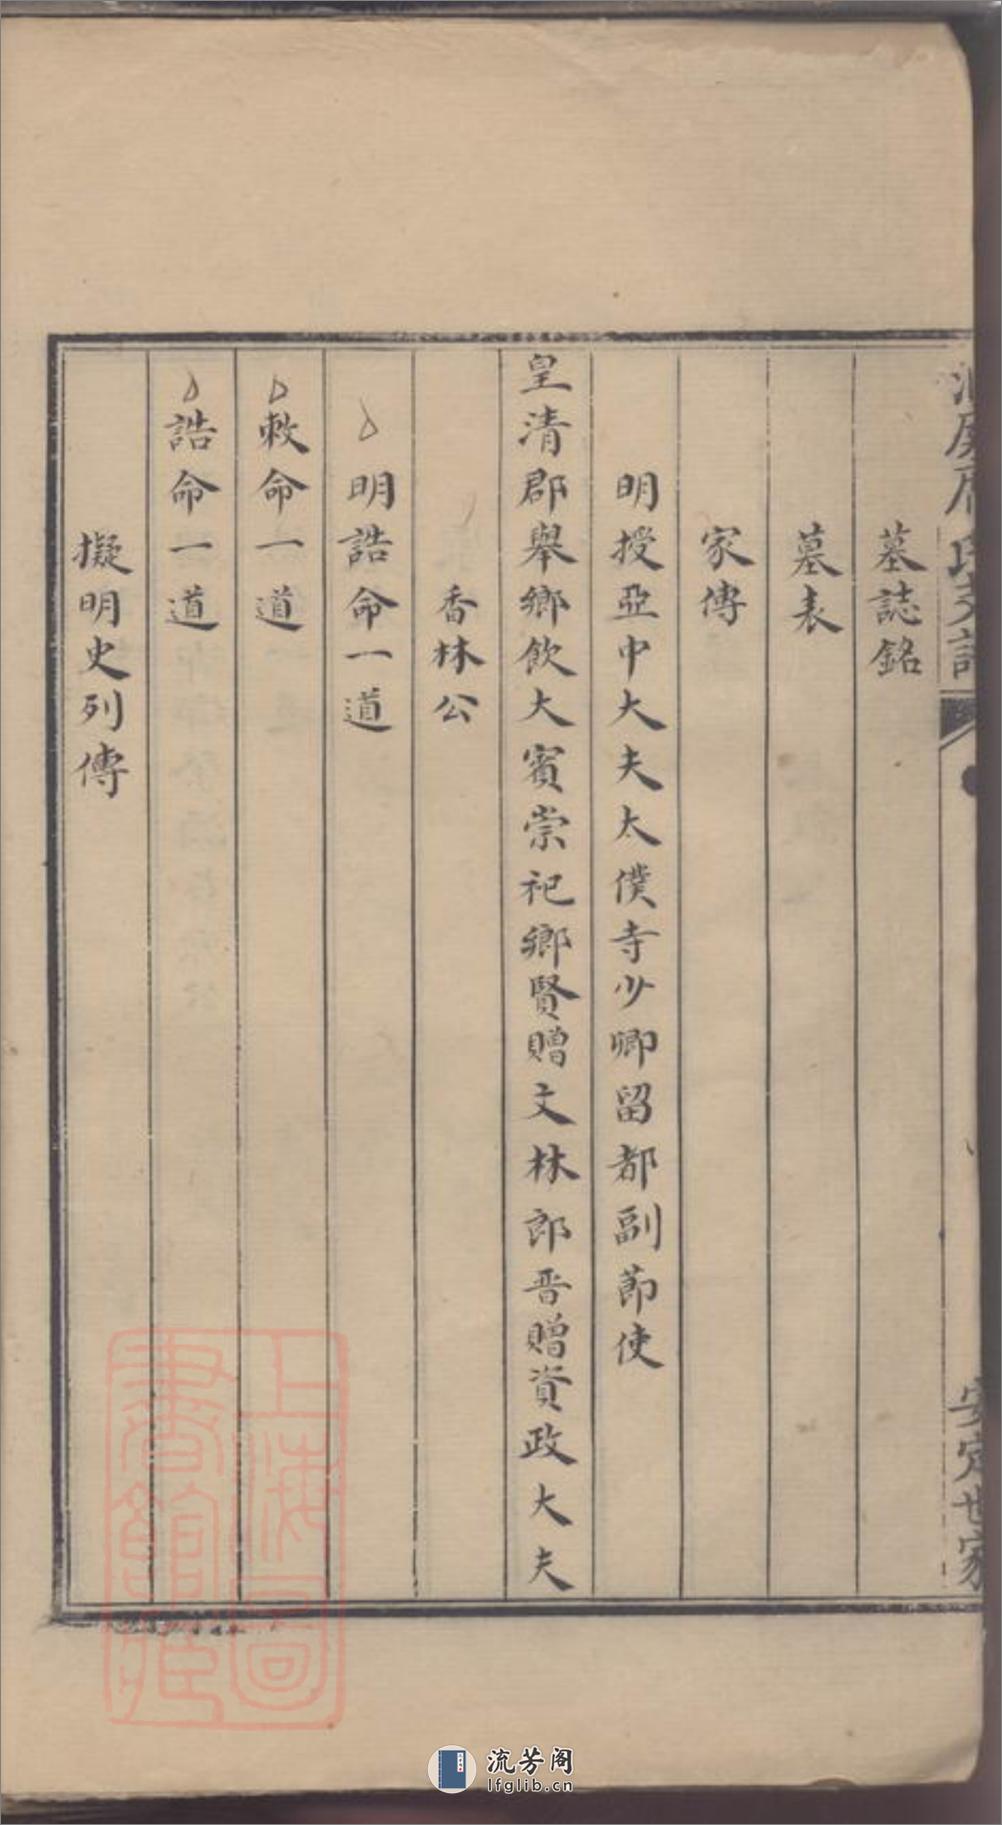 墓誌銘
墓表
家傳
明授亞中大夫太僕寺少卿留都副節使
皇清郡舉鄉飲大賓崇祀鄉賢贈文林郎晋贈資政大夫
香林公
明誥命一道
敕命一道
誥命一道
擬明史列傳
安定世家
上海圖書館藏
流芳阁
lfglib.cn